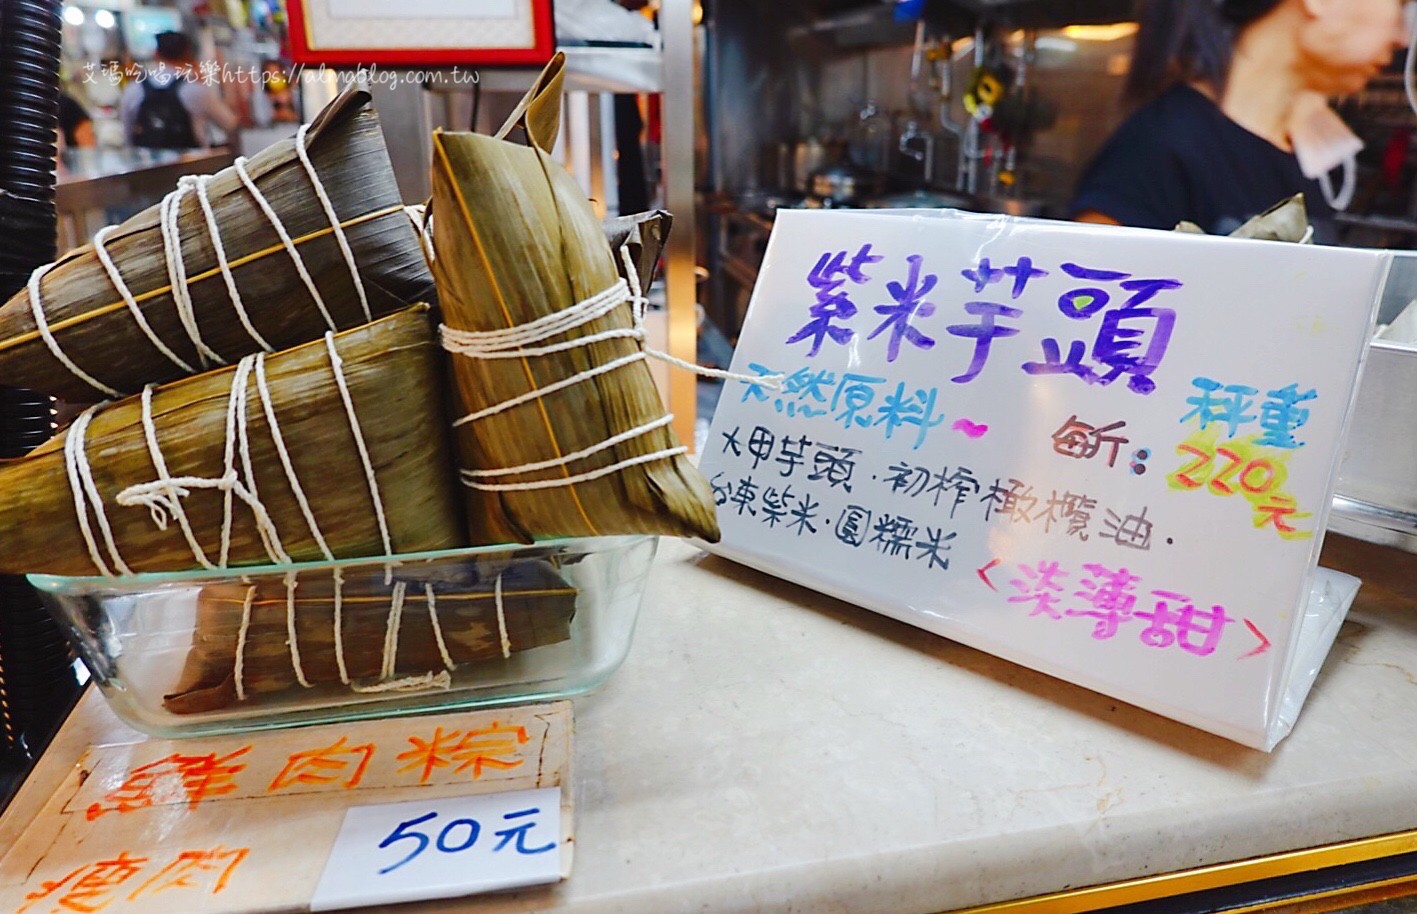 艾瑪吃喝玩樂https://almablog.com.tw
紫米芋頭
天然原料~
秤重
每斤：220元
大甲芋頭．初榨橄欖油．
台東紫米．圓糯米
<淡薄甜>
鮮肉粽
50元
瘦肉